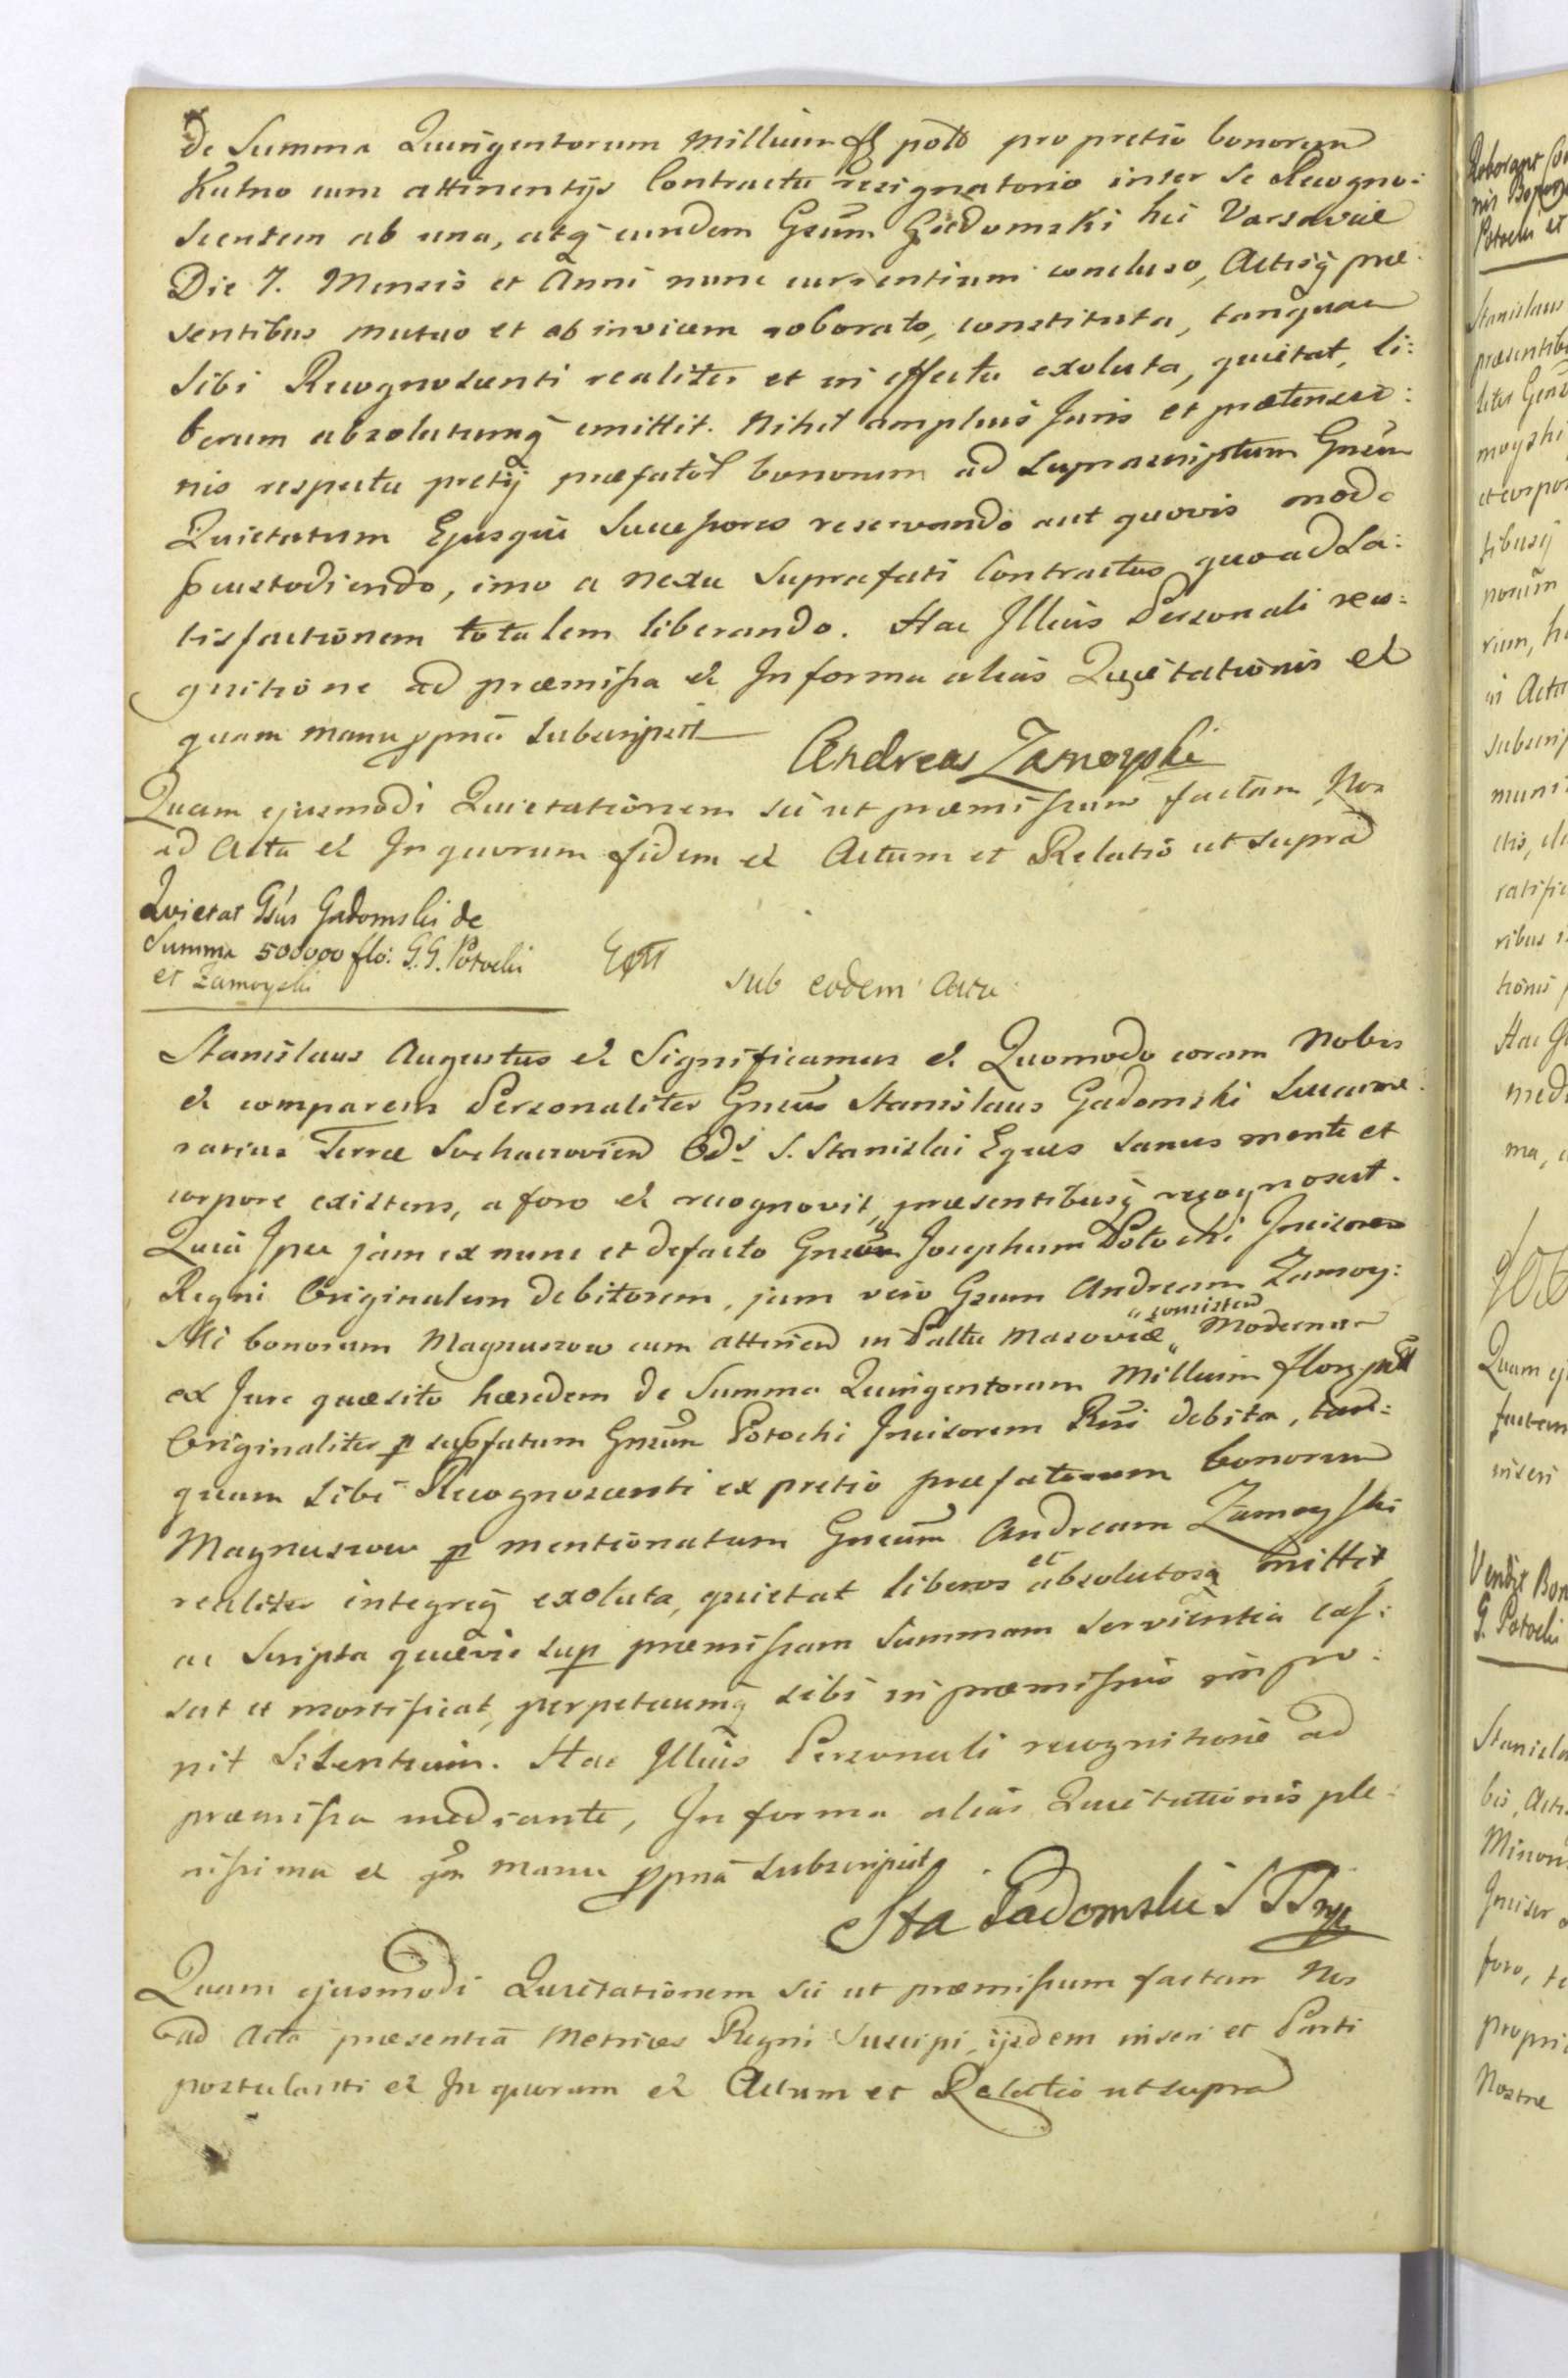 de Summa Quingentorum Millium fl polo pro pretio bonorum
Kutno cum attinentijs Contractu resignatorio inter se Recogno:
scentem ab una, atq eundem Gsum Gadomski hic Varsaviæ
Die 7. Mensis et Anni nunc currentium concluso, Actisq præ:
sentibus mutuo et ab invicem roborato, constituta, tanquam
Sibi Recognoscenti realiter et in effectu exoluta, quietat, li:
berum absolutumq emittit. Nihil amplius Juris et prætensio:
nis respectu pretij præfator bonorum ad suprascriptum Gnsum
Quietatum Ejusque Successores reservando aut quovis modo
pcustodiendo, imo a nexu suprafati Contractus quoad Sa:
tisfactionem totalem liberando. Hac Illius Personali reco:
gnitione ad præmissa et In forma alias Quietationis et
quam manu ppria subscripsit
Andreas Zamoyski
Quam ejusmodi Quietationem sic ut præmissum factam Nos
ad Acta et In quorum fidem et Actum et Relatio ut supra
Quietat Gsus Gadomski de
Summa 500000 flo: G.G. Potocki
et Zamoyski
Sub eodem Actu
Stanislaus Augustus et Significamus et Quomodo coram Nobis
et comparens Personaliter Gnsus Stanislaus Gadomski Succame:
rarius Terræ Sochaczovien Ods S. Stanislai Eques sanus mente et
corpore existens, a foro et recognovit, præsentibusq recognoscit.
Quia Ipse jam ex nunc et defacto Gnsum Josephum Potocki Incisorem
Regni Originalem debitorem, jam vero Gsum Andream Zamoy:
ski bonorum Magnuszow cum attinen in Pallu Masoviæ „consisten„ Modernum
ex Jure quæsito hæredem de Summa Quingentorum Millium flor pol
Originaliter p subfatum Gnsum Potocki Incisorem Rni debita, tan:
quam sibi Recognoscenti ex pretio præfatorum bonorum
Magnuszow p mentionatum Gnsum Andream Zamoyski
realiter integreq exoluta, quietat liberos et absolutosq mittit
ac Scripta quævis sup præmissam Summam servientia cas:
sat et mortificat, perpetuumq sibi in præmissis impo:
nit Silentium. Hac Illius Personali recognitione ad
præmissa mediante, In forma alias Quietationis ple:
nissima et qm manu ppria subscripsit
Sta Gadomski
Quam ejusmodi Quietationem sic ut præmissum factam Nos
ad Acta præsentia Metrices Regni suscipi, ijsdem inseri et Parti
postulanti et In quorum et Actum et Relatio ut supra
Potocki et
Stanislaus
præsentib
moyski
norum
rium, h
in Acta
ratific
ribus
Hac
med
ma,
Quam ej
inseri
Vendit Bon
G. Potocki
Stanisla
bis, Actis
foro,
propri
Nostræ